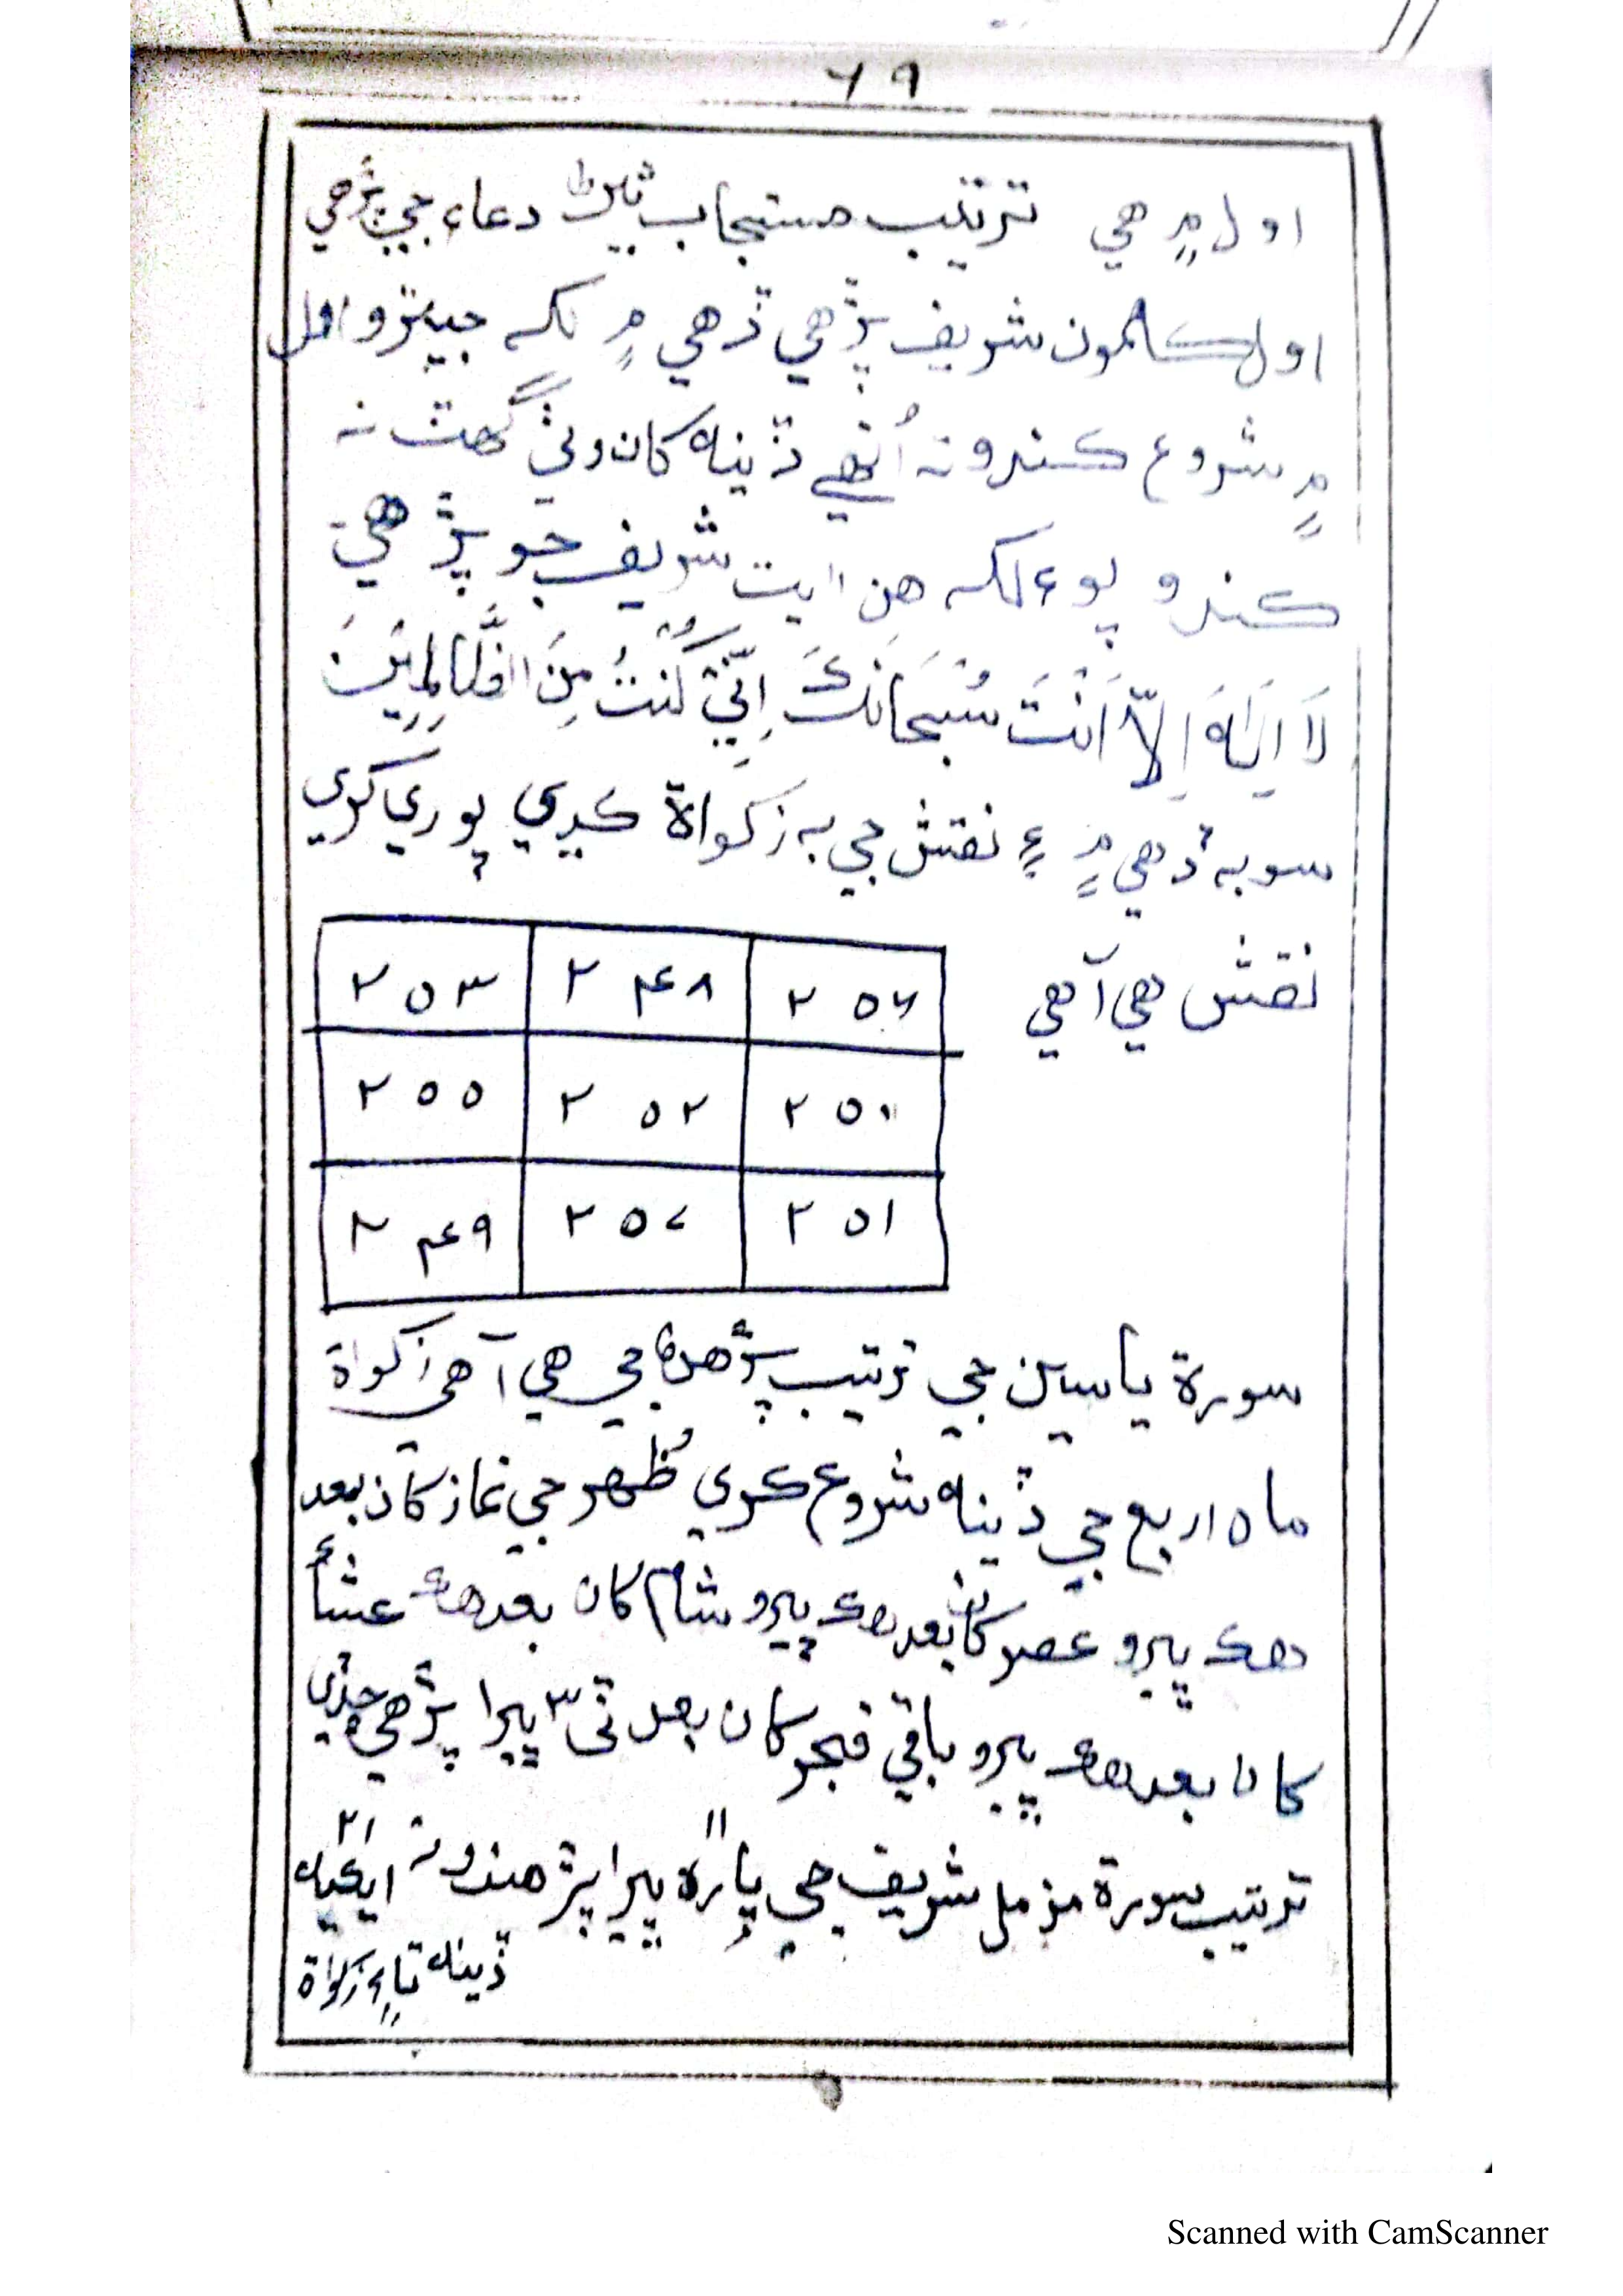 ٦٩
اول ۾ هي ترتيب مستجاب ٿيڻ دعاء جي پڙهي
اول ڪلمون شريف پڙهي ڏهي ۾ لک جيترو اول
۾ شروع ڪندو ته اُنهي ڏينهه کان وٺي گهٽ نه
ڪندو پوءِ لک هن ايت شريف جو پڙهي
لَا اِلٰهَ اِلَّا اَنْتَ سُبْحَانَكَ اِنِّيْ كُنْتُ مِنَ الظَّالِمِيْنَ
سو به ڏهي ۾ ۽ نقش جي به زكواة ڪڍي پوري ڪري
نقش هي آهي
٢٥٣ ٢۴٨ ٢٥٦
٢٥٥ ٢٥٢ ٢٥٠
٢۴٩ ٢٥٧ ٢٥١
سورة ياسين جي ترتيب پڙهڻ جي هي آهي زكواة
ماه اربع جي ڏينهه شروع ڪري ظُهر جي نماز کان بعد
هڪ ڀيرو عصر کان بعد هڪ ڀيرو شام کان بعد هڪ عشاءً
کان بعد هڪ ڀيرو باقي فجر کان بعد ٽي ٣ ڀيرا پڙهي ڇڏي
ترتيب سورة مزمل شريف جي يارهن ١١ ڀيرا پڙهندو ته ايڪيهه ٢١
ڏينهه تاءِ زكواة
Scanned with CamScanner